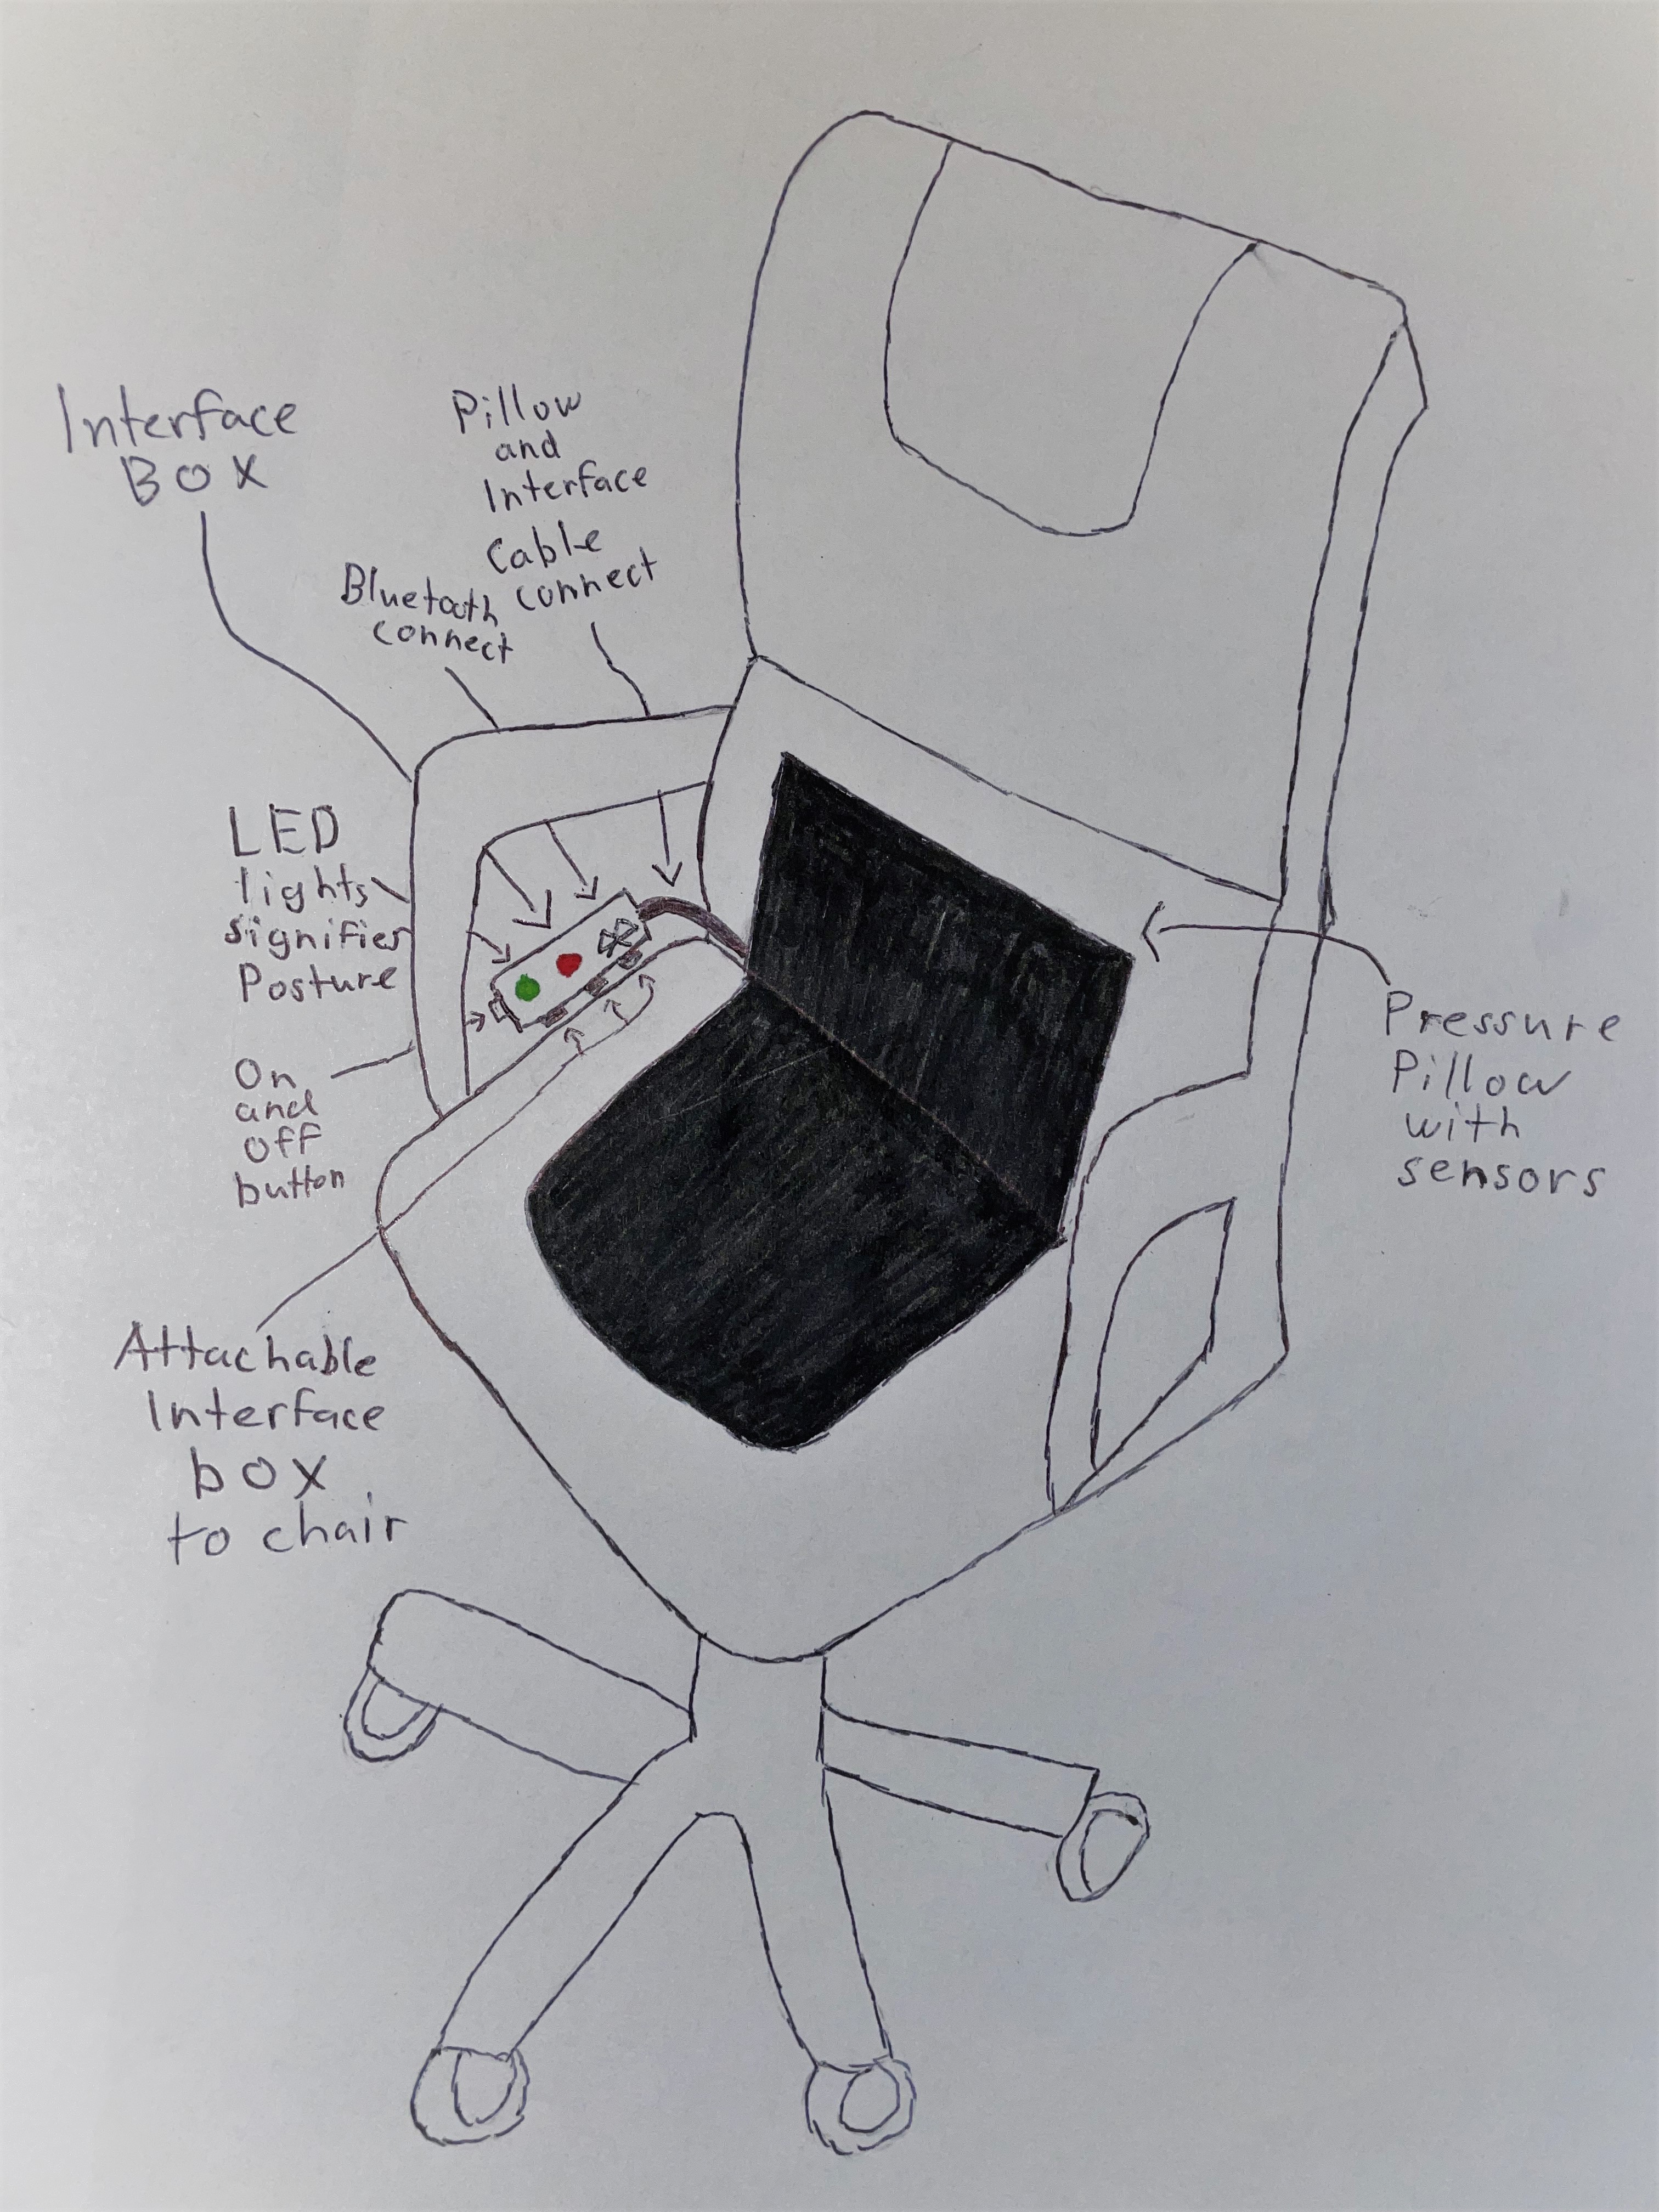 Interface
BOX
Pillow
and
Interface
Cable
connect
Bluetooth
connect
LED
lights
signifies
Posture
On
and
off
button
Attachable
Interface
box
to chair
Pressure
Pillow
with
sensors